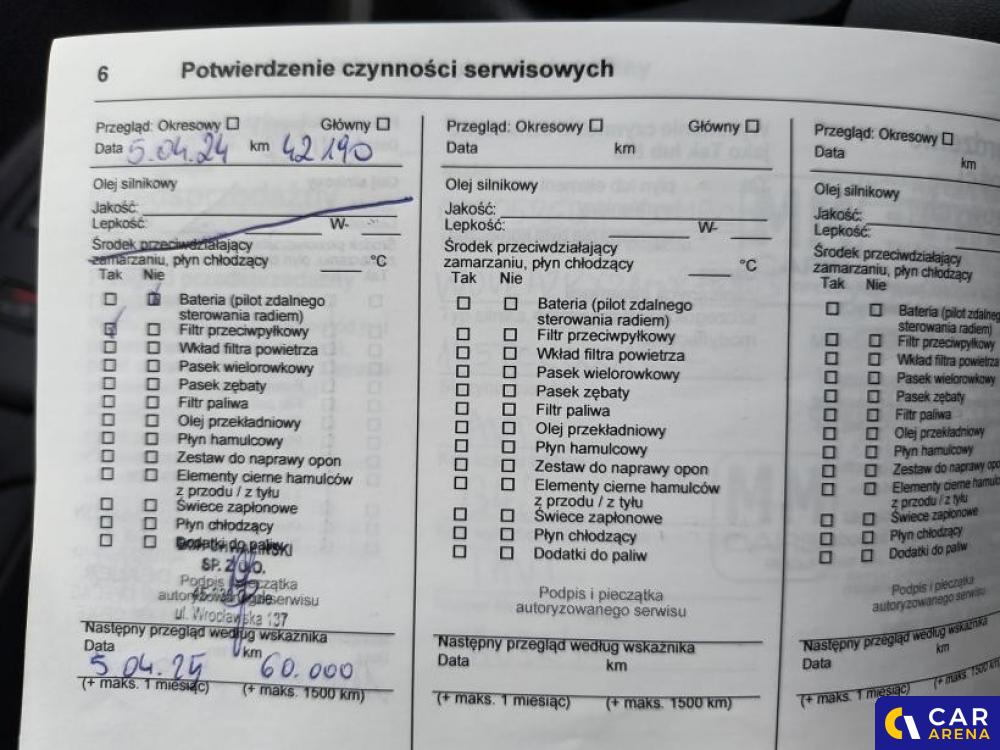 6 Potwierdzenie czynności serwisowych
Przegląd: Okresowy Główny
Data 5.04.24 km 42190
Olej silnikowy
Jakość:
Lepkość: W-
Środek przeciwdziałający
zamarzaniu, płyn chłodzący °C
Tak Nie
Bateria (pilot zdalnego
sterowania radiem)
Filtr przeciwpyłkowy
Wkład filtra powietrza
Pasek wielorowkowy
Pasek zębaty
Filtr paliwa
Olej przekładniowy
Płyn hamulcowy
Zestaw do naprawy opon
Elementy cierne hamulców
z przodu / z tyłu
Świece zapłonowe
Płyn chłodzący
Dodatki do paliw
SP. Z O.O.
Podpis i pieczątka
autoryzowanego serwisu
ul. Wrocławska 137
Następny przegląd według wskaźnika
Data km
5.04.25 60.000
(+ maks. 1 miesiąc) (+ maks. 1500 km)
Przegląd: Okresowy Główny
Data km
Olej silnikowy
Jakość:
Lepkość: W-
Środek przeciwdziałający
zamarzaniu, płyn chłodzący °C
Tak Nie
Bateria (pilot zdalnego
sterowania radiem)
Filtr przeciwpyłkowy
Wkład filtra powietrza
Pasek wielorowkowy
Pasek zębaty
Filtr paliwa
Olej przekładniowy
Płyn hamulcowy
Zestaw do naprawy opon
Elementy cierne hamulców
z przodu / z tyłu
Świece zapłonowe
Płyn chłodzący
Dodatki do paliw
Podpis i pieczątka
autoryzowanego serwisu
Następny przegląd według wskaźnika
Data km
(+ maks. 1 miesiąc) (+ maks. 1500 km)
Przegląd: Okresowy
Data km
Olej silnikowy
Jakość:
Lepkość:
Środek przeciwdziałający
zamarzaniu, płyn chłodzący
Tak Nie
Bateria (pilot zdalneg
sterowania radiem)
Filtr przeciwpyłkowy
Wkład filtra powietrza
Pasek wielorowkowy
Pasek zębaty
Filtr paliwa
Olej przekładniowy
Płyn hamulcowy
Zestaw do naprawy opon
Elementy cierne hamulc
z przodu / z tyłu
Świece zapłonowe
Płyn chłodzący
Dodatki do paliw
Podpis i pieczątka
autoryzowanego serwisu
Następny przegląd według wskaźnika
Data km
(+ maks. 1 miesiąc) (+ maks. 1500 km)
CAR
ARENA